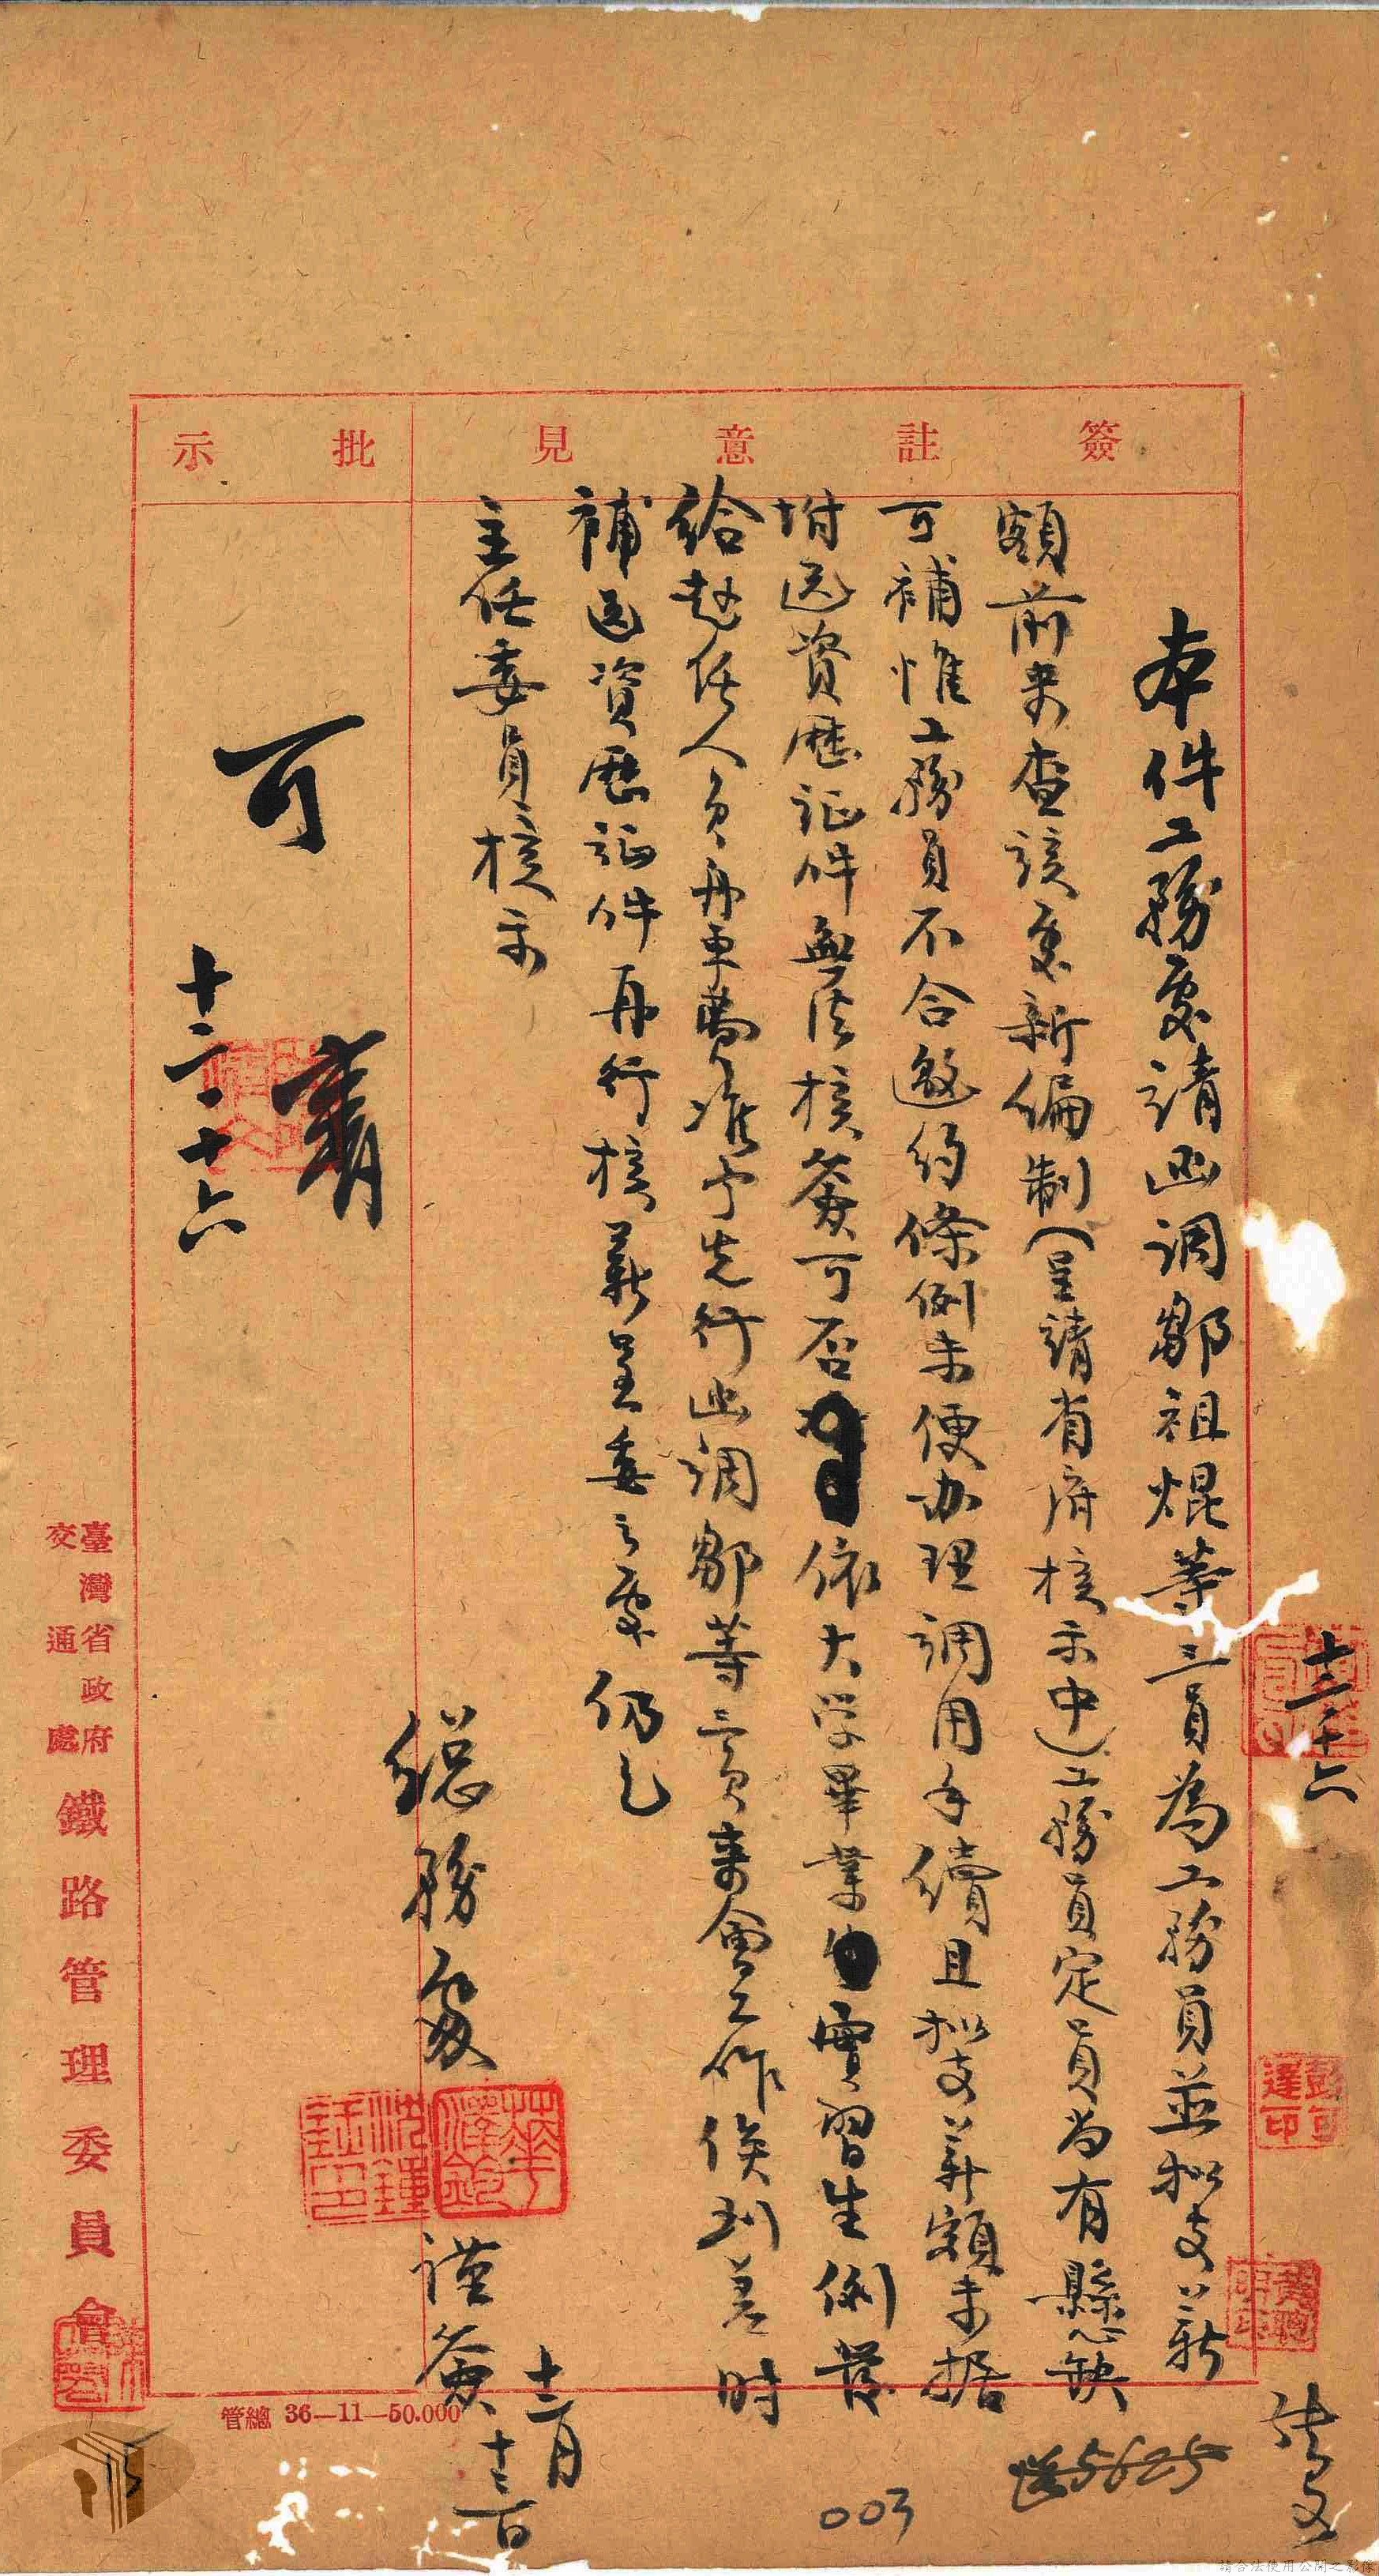 簽註意見
批示
本件工務處請函調鄒祖焜等三員為工務員並擬支薪
額前來查該處新編制(呈請省府核示中)工務員定員尚有懸缺
可補惟工務員不合邀約條例未便办理調用手續且擬支薪額未据
附送資歷証件無法核簽可否依大学畢業實習生例
給赴任人員再車費准予先行函調鄒等三員來會工作俟到差时
補送資歷証件再行核薪呈委之處仍乞
主任委員核示
總務處
謹簽
十二月
十二月十六
可
十二、十六
臺灣省政府
交通處
鐵路管理委員會
管總 36—11—50.000
彭可達印
送5625
003
請合法使用公開之影像